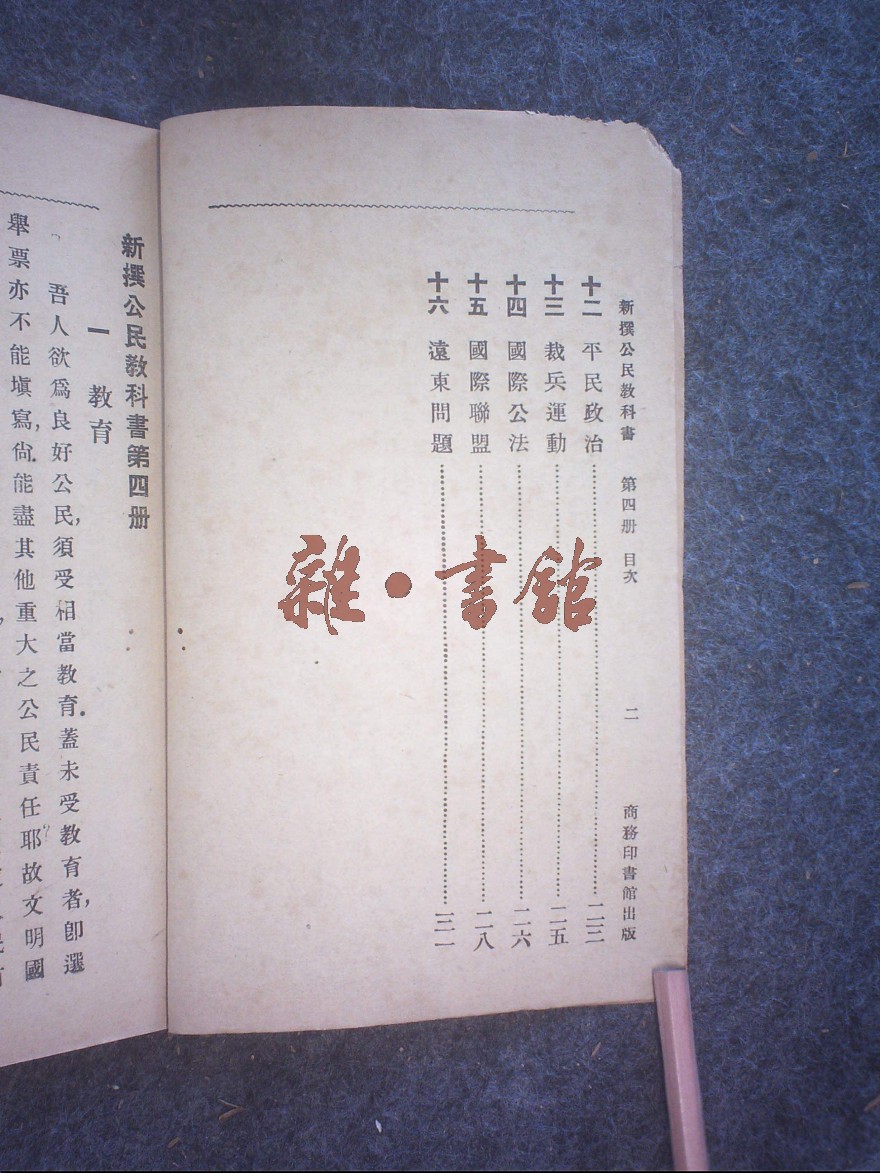 新撰公民教科書 第四册 目次 二 商務印書館出版
十二 平民政治 二三
十三 裁兵運動 二五
十四 國際公法 二六
十五 國際聯盟 二八
十六 遠東問題 三一
雜·書館
新撰公民教科書第四册
一 教育
吾人欲爲良好公民,須受相當教育.蓋未受教育者,卽選
舉票亦不能塡寫,尙能盡其他重大之公民責任耶?故文明國